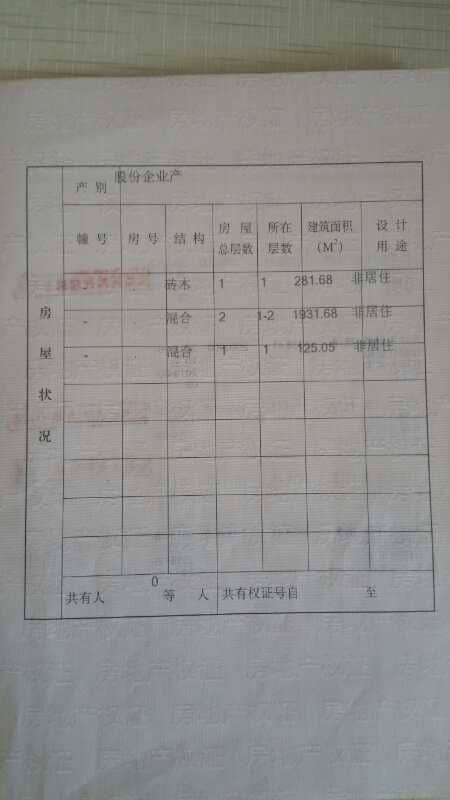 产别 股份企业产
幢号 房号 结构 房屋总层数 所在层数 建筑面积(M²) 设计用途
砖木 1 1 281.68 非居住
- 混合 2 1-2 1931.68 非居住
- 混合 1 1 125.05 非居住
房屋状况
共有人 0 等 人 共有权证号自 至